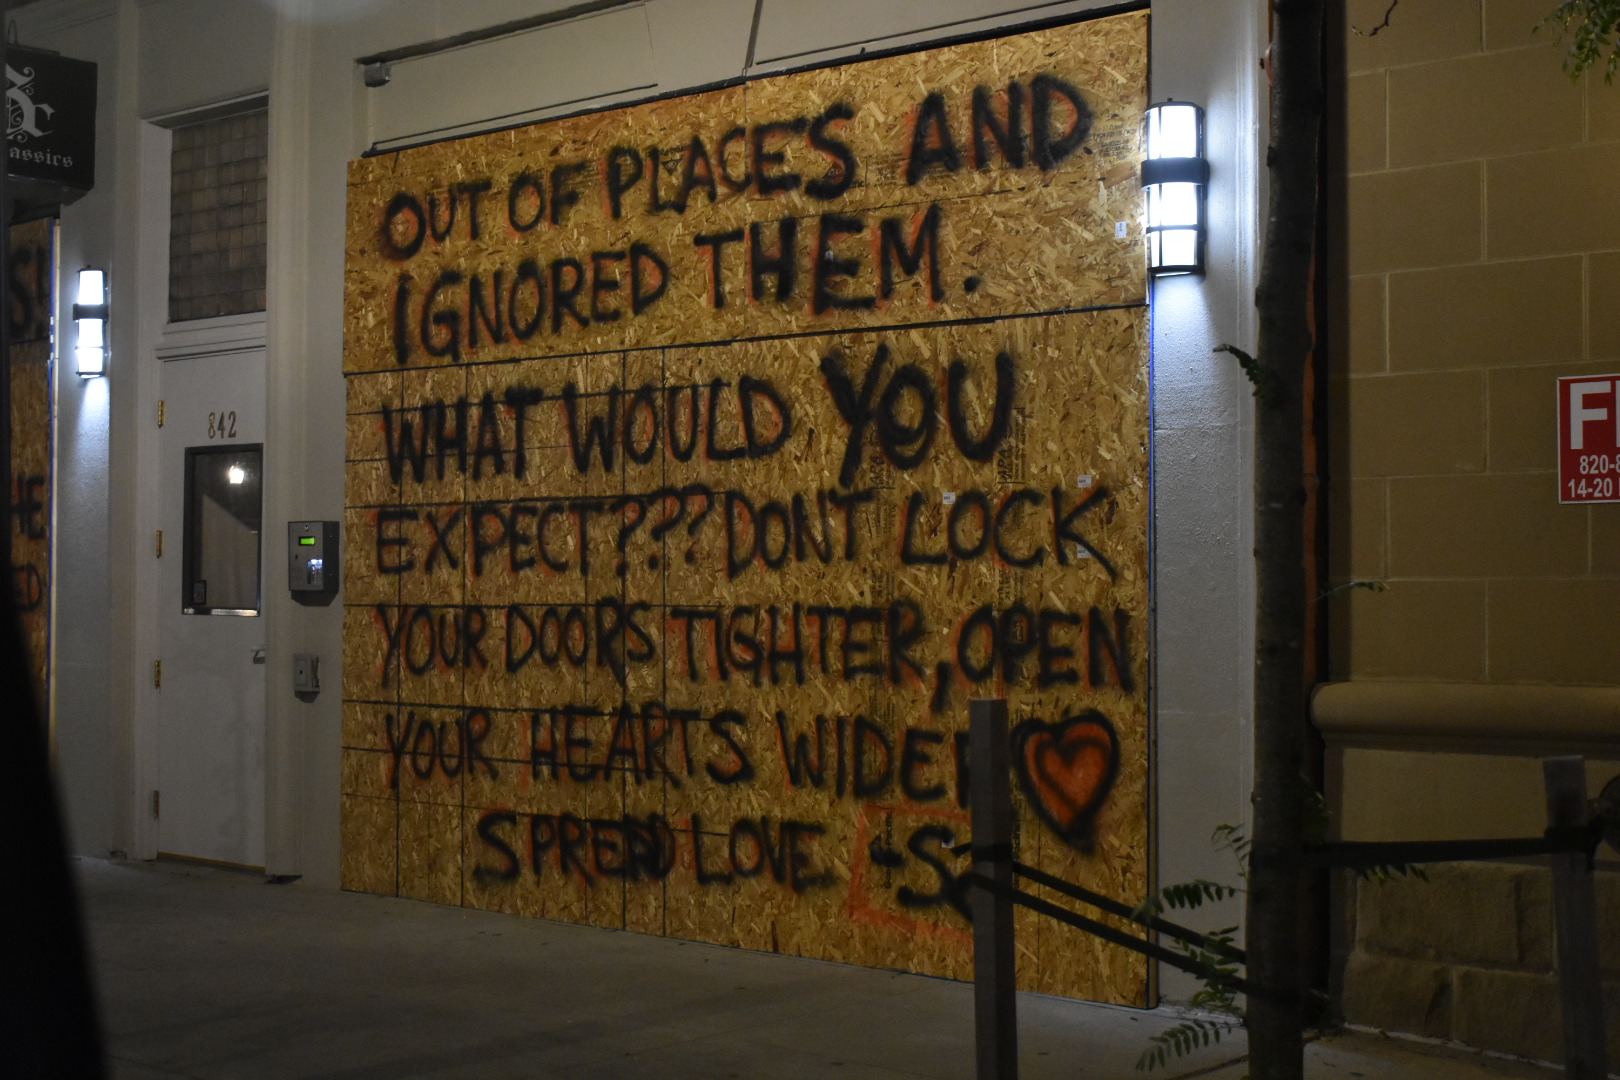 assics
842
OUT OF PLACES AND
IGNORED THEM.
WHAT WOULD YOU
EXPECT??? DONT LOCK
YOUR DOORS TIGHTER, OPEN
YOUR HEARTS WIDER
SPREAD LOVE
820-8
14-20